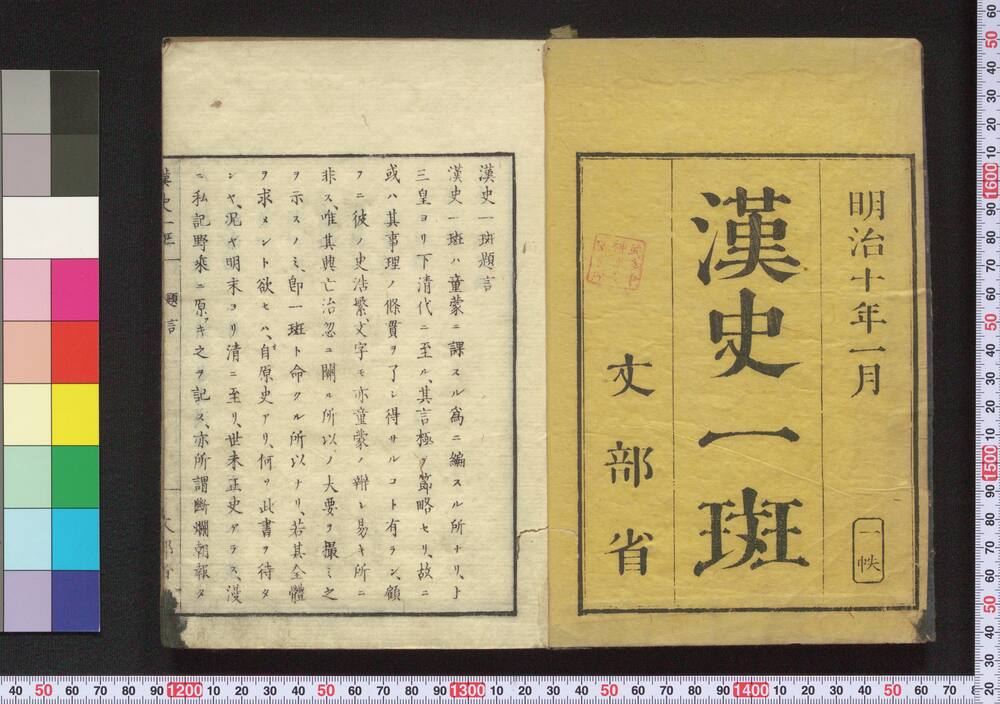 明治十年一月
一帙
漢史一斑
文部省
漢史一斑題言
漢史一斑ハ童蒙ニ課スル為ニ編スル所ナリ、上
三皇ヨリ下清代ニ至ル、其言極テ節略セリ、故ニ
或ハ其事理ノ條貫ヲ了シ得サルコト有ラン、顧
フニ彼ノ史浩繁、文字モ亦童蒙ノ辨シ易キ所ニ
非ス、唯其興亡治忽ニ關ル所以ノ大要ヲ撮ミ之
ヲ示スノミ、即一斑ト命クル所以ナリ、若其全體
ヲ求メント欲セハ、自原史アリ、何ソ此書ヲ待タ
ンヤ、况ヤ明末ヨリ清ニ至リ、世未正史アラス、漫
ニ私記野乘ニ原キ之ヲ記ス、亦所謂斷爛朝報タ
漢史一斑 題言 文部省